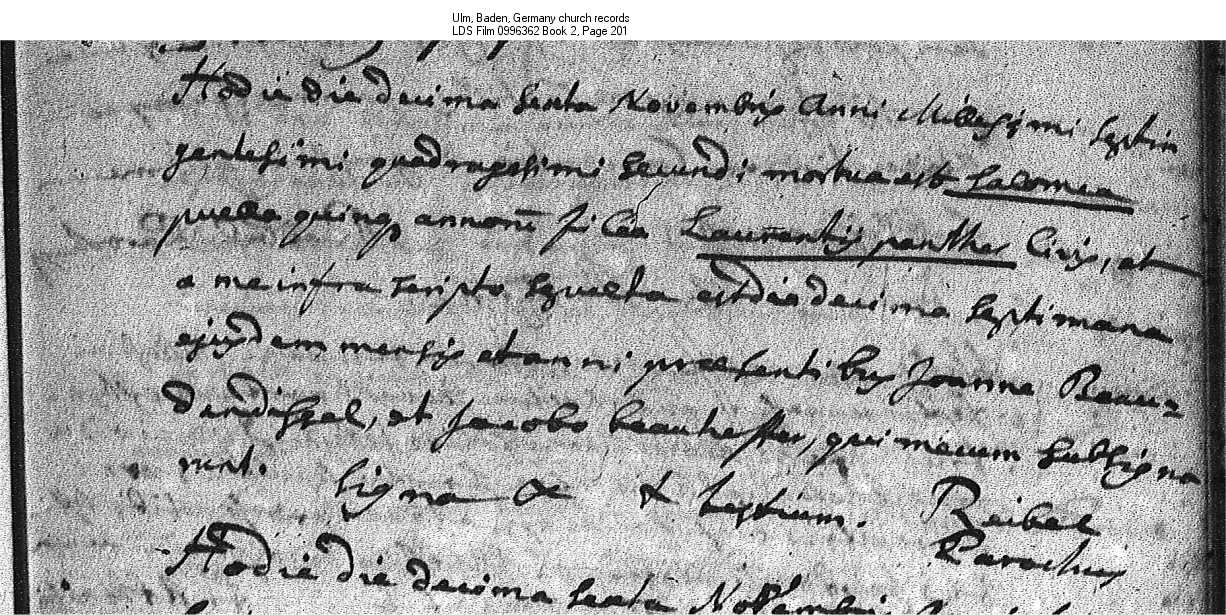 Ulm, Baden, Germany church records
LDS Film 0996362 Book 2, Page 201
Hodie die decima sexta Novembris Anni Millesimi septin
gentesimi quadragesimi secundi mortua est Salomea
puella quinq annorū filia Laurentij panther Civis, et
a me infra scripto sepulta est die decima septima
ejusdem mensis et anni praesentibus Joanne
et Jacobo qui mecum subsigna
runt. Signa testium. Reibel
Parochus
Hodie die decima sexta Novembris